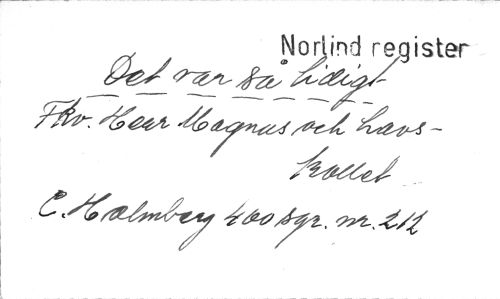 Norlind register
Det var så tidigt
Fkv. Herr Magnus och havs-
trollet
C. Holmberg 400 sgr. nr. 212